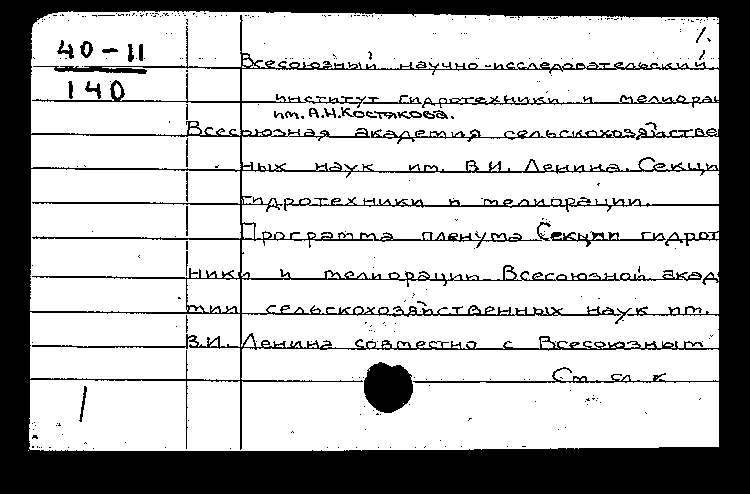 1.
40-11
140
Всесоюзный научно-исследовательский
институт гидротехники и мелиора
им. А.Н.Костякова.
Всесоюзная академия сельскохозяйстве
ных наук им. В.И. Ленина. Секци
гидротехники и мелиорации.
Программа пленума Секции гидрот
ники и мелиорации Всесоюзной акад
мии сельскохозяйственных наук им.
В.И. Ленина совместно с Всесоюзным
См. сл. к
1